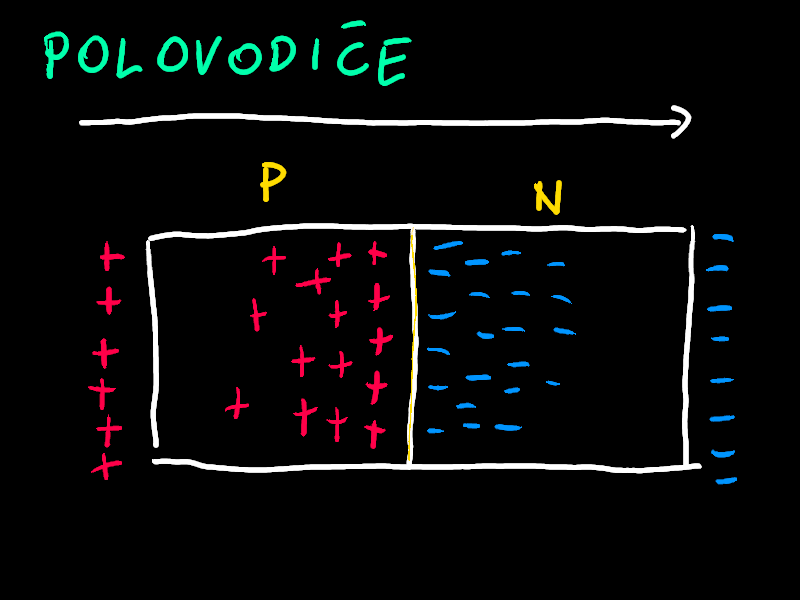 POLOVODIČE
P N